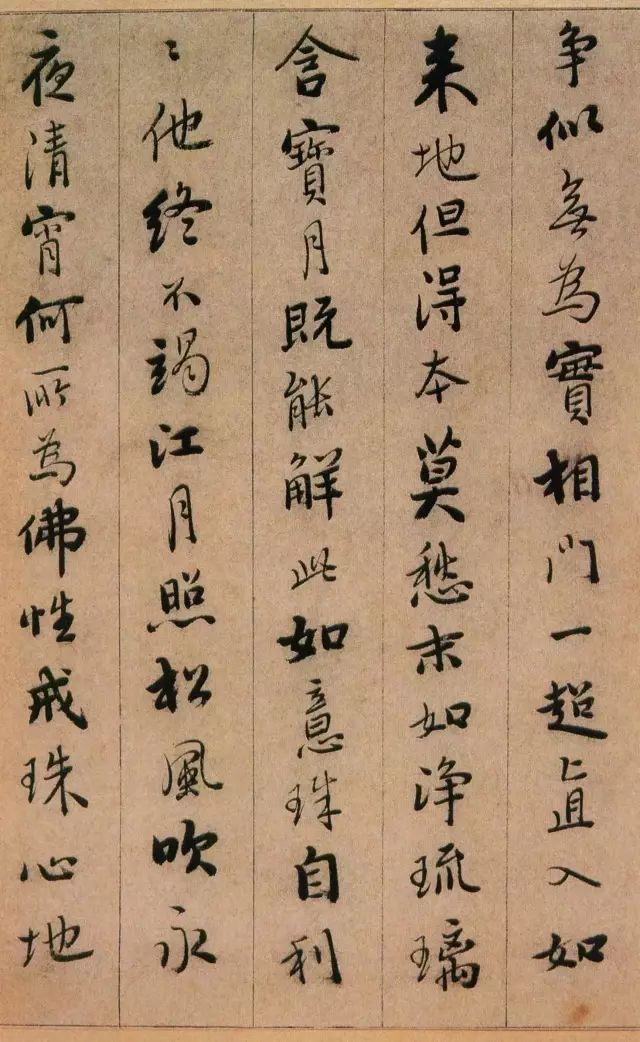 争似無為實相門一超直入如
来地但得本莫愁末如浄琉璃
含寶月既能解此如意珠自利
〻他終不竭江月照松風吹永
夜清宵何所為佛性戒珠心地